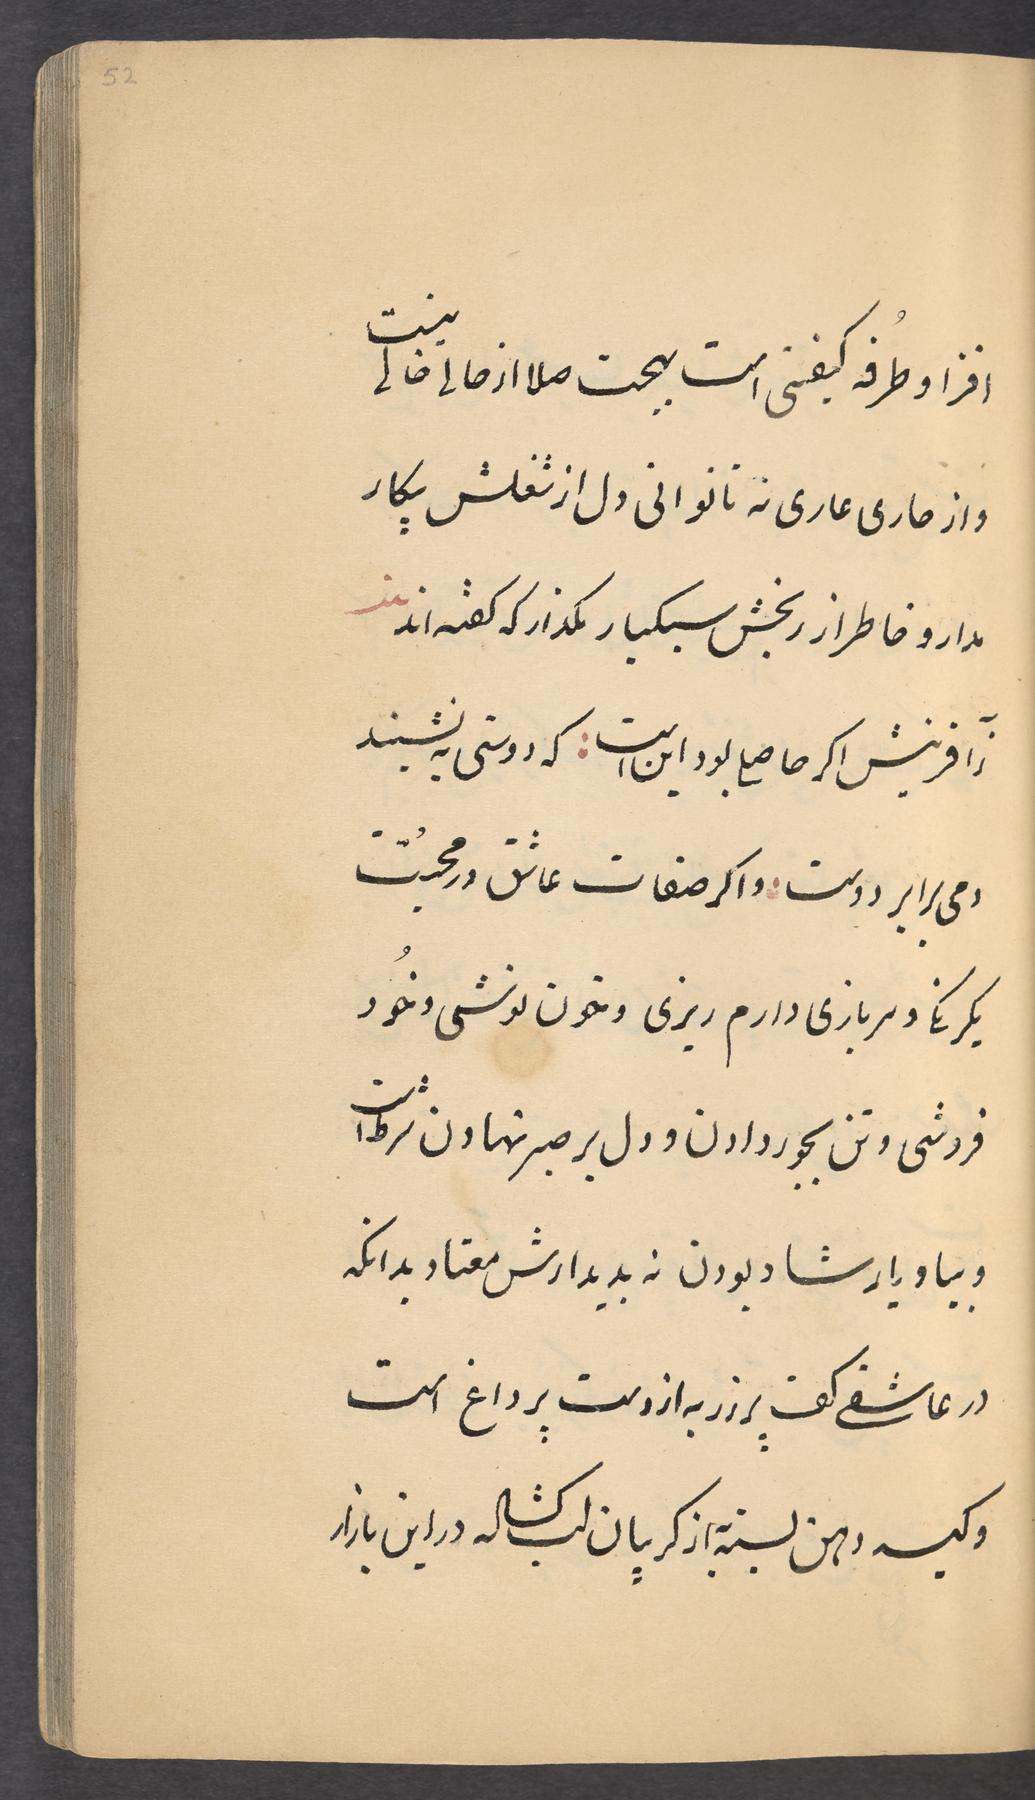 52
افزا و طُرفه کیفیتی است بهجت صلا از حالی خالی نیست
و از عاری عاری نه تا توانی دل از شغلش بیکار
مدار و خاطر از رنجش سبکبار مگذار که گفته اند
ز آفرینش اگر حاصلی بود این است : که دوستی بنشیند
دمی برابر دوست : و اگر صفات عاشق در محبّت
یکرنگی و سربازی و ارم ریزی و خون نوشی و خُود
فروشی و تن بجور دادن و دل بر صبر نهادن شرط است
و بیاد یار شاد بودن نه بدیدارش معتاد بدانکه
در عاشقی کف پر زر به از دست پر داغ است
و کیسه دهن بسته به از گریبان لب گشاده در این بازار